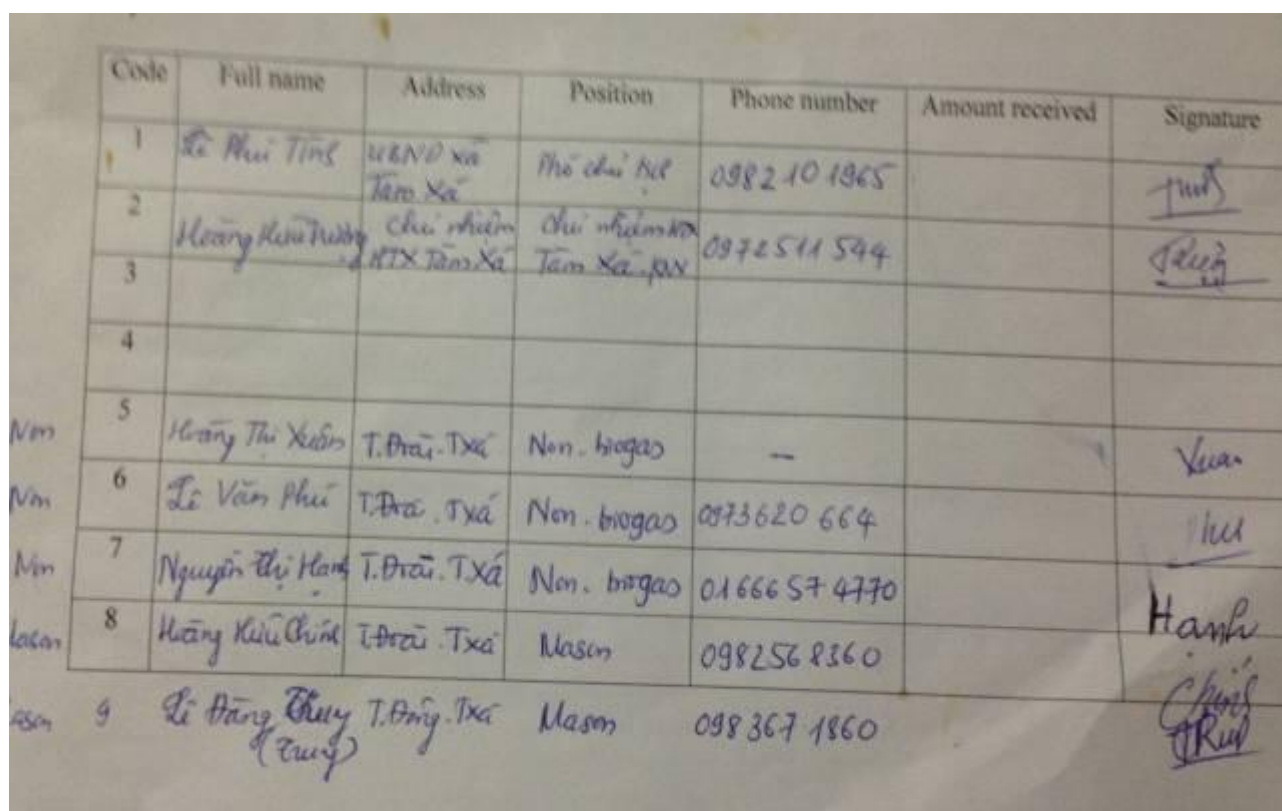 Code Full name Address Position Phone number Amount received Signature
1 Lê Phú Tính UBND xã Phó chủ tịch 0982 10 1965
Tàm Xá
2 Hoàng Hữu chủ nhiệm chủ nhiệm 0972511 544
HTX Tàm Xá Tàm Xá
3
4
Non 5 Hoàng Thị Xuân T.Đoài.Txá Non. biogas – Xuan
Non 6 Lê Văn Phú T.Đoài.Txá Non. biogas 0973620 664
Non 7 Nguyễn Thị Hạnh T.Đoài.T.Xá Non. biogas 01666 57 4770 Hạnh
Mason 8 Hoàng Hữu Chính T.Đoài.Txá Mason 0982568360 Chính
9 Lê Đăng Thuy T.Đông.Txá Mason 098 367 1860
(Trung)